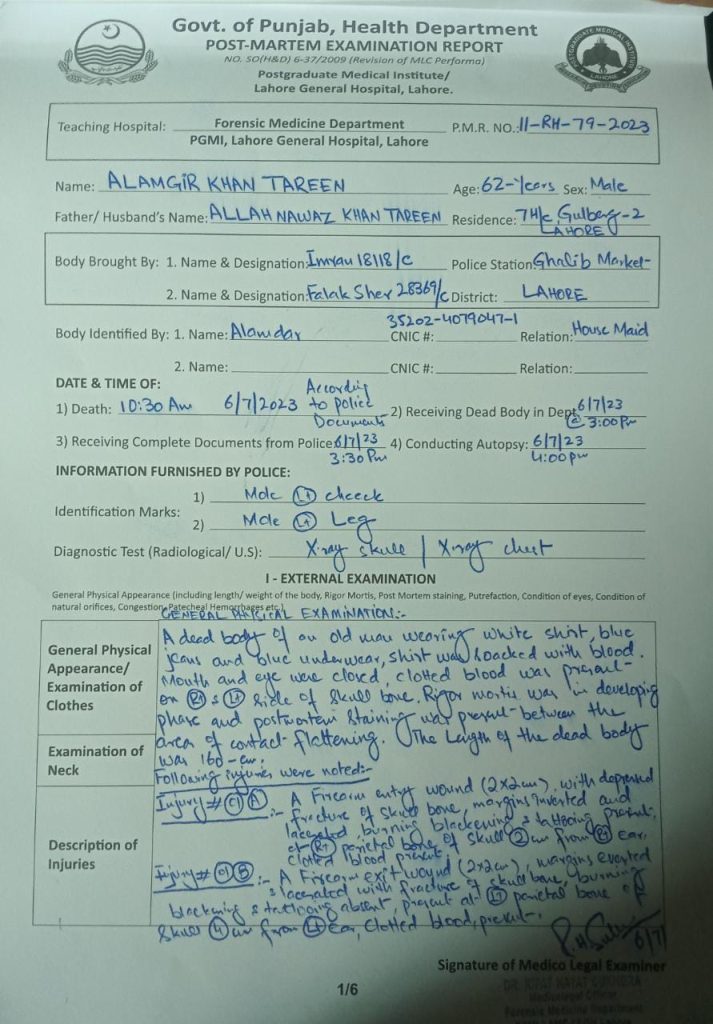 Govt. of Punjab, Health Department
POST-MARTEM EXAMINATION REPORT
NO. SO(H&D) 6-37/2009 (Revision of MLC Performa)
Postgraduate Medical Institute/
Lahore General Hospital, Lahore.
POSTGRADUATE MEDICAL INSTITUTE
LAHORE
Teaching Hospital: Forensic Medicine Department P.M.R. NO.: 11-RH-79-2023
PGMI, Lahore General Hospital, Lahore
Name: ALAMGIR KHAN TAREEN Age: 62-Years Sex: Male
Father/ Husband's Name: ALLAH NAWAZ KHAN TAREEN Residence: 7H/c, Gulberg-2
LAHORE
Body Brought By: 1. Name & Designation: Imran 18118/c Police Station: Ghalib Market-
2. Name & Designation: Falak Sher 28369/c District: LAHORE
35202-4079047-1
Body Identified By: 1. Name: Alamdar CNIC #: Relation: House Maid
2. Name: CNIC #: Relation:
DATE & TIME OF:
1) Death: 10:30 Am 6/7/2023 According to police Documents 2) Receiving Dead Body in Dept 6/7/23 @ 3:00 Pm
3) Receiving Complete Documents from Police: 6/7/23 3:30 Pm 4) Conducting Autopsy: 6/7/23 4:00 pm
INFORMATION FURNISHED BY POLICE:
Identification Marks: 1) Mole (Lt) cheeck
2) Mole (Lt) Leg
Diagnostic Test (Radiological/ U.S): X-ray skull / X-ray chest
I - EXTERNAL EXAMINATION
General Physical Appearance (including length/ weight of the body, Rigor Mortis, Post Mortem staining, Putrefaction, Condition of eyes, Condition of
natural orifices, Congestion, Patecheal Hemorrhages etc.)
GENERAL PHYSICAL EXAMINATION:-
General Physical Appearance/ Examination of Clothes
A dead body of an old man wearing white shirt, blue
jeans and blue underwear, shirt was soacked with blood.
Mouth and eye were closed, clotted blood was present-
on (Rt) & (Lt) side of skull bone. Rigor mortis was in developing
phase and postmortem staining was present between the
Examination of Neck
area of contact flattening. The Length of the dead body
was 160-cm.
Following injuries were noted:-
Description of Injuries
Injury # (01) (A) :- A Firearm entry wound (2x2cm), with depressed
fracture of skull bone, margins inverted and
lacerated, burning blackening & tattooing present.
at (Rt) parietal bone of skull 2cm from (Rt) ear,
clotted blood present.
Injury # (01) (B) :- A Firearm exit wound (2x2cm), margins everted
& lacerated with fracture of skull bone, burning
blackening & tattooing absent, present at (Lt) parietal bone of
skull cm from (Lt) ear, Clotted blood, present.
6/7/
Signature of Medico Legal Examiner
1/6
Medicolegal Officer
Forensic Medicine Department